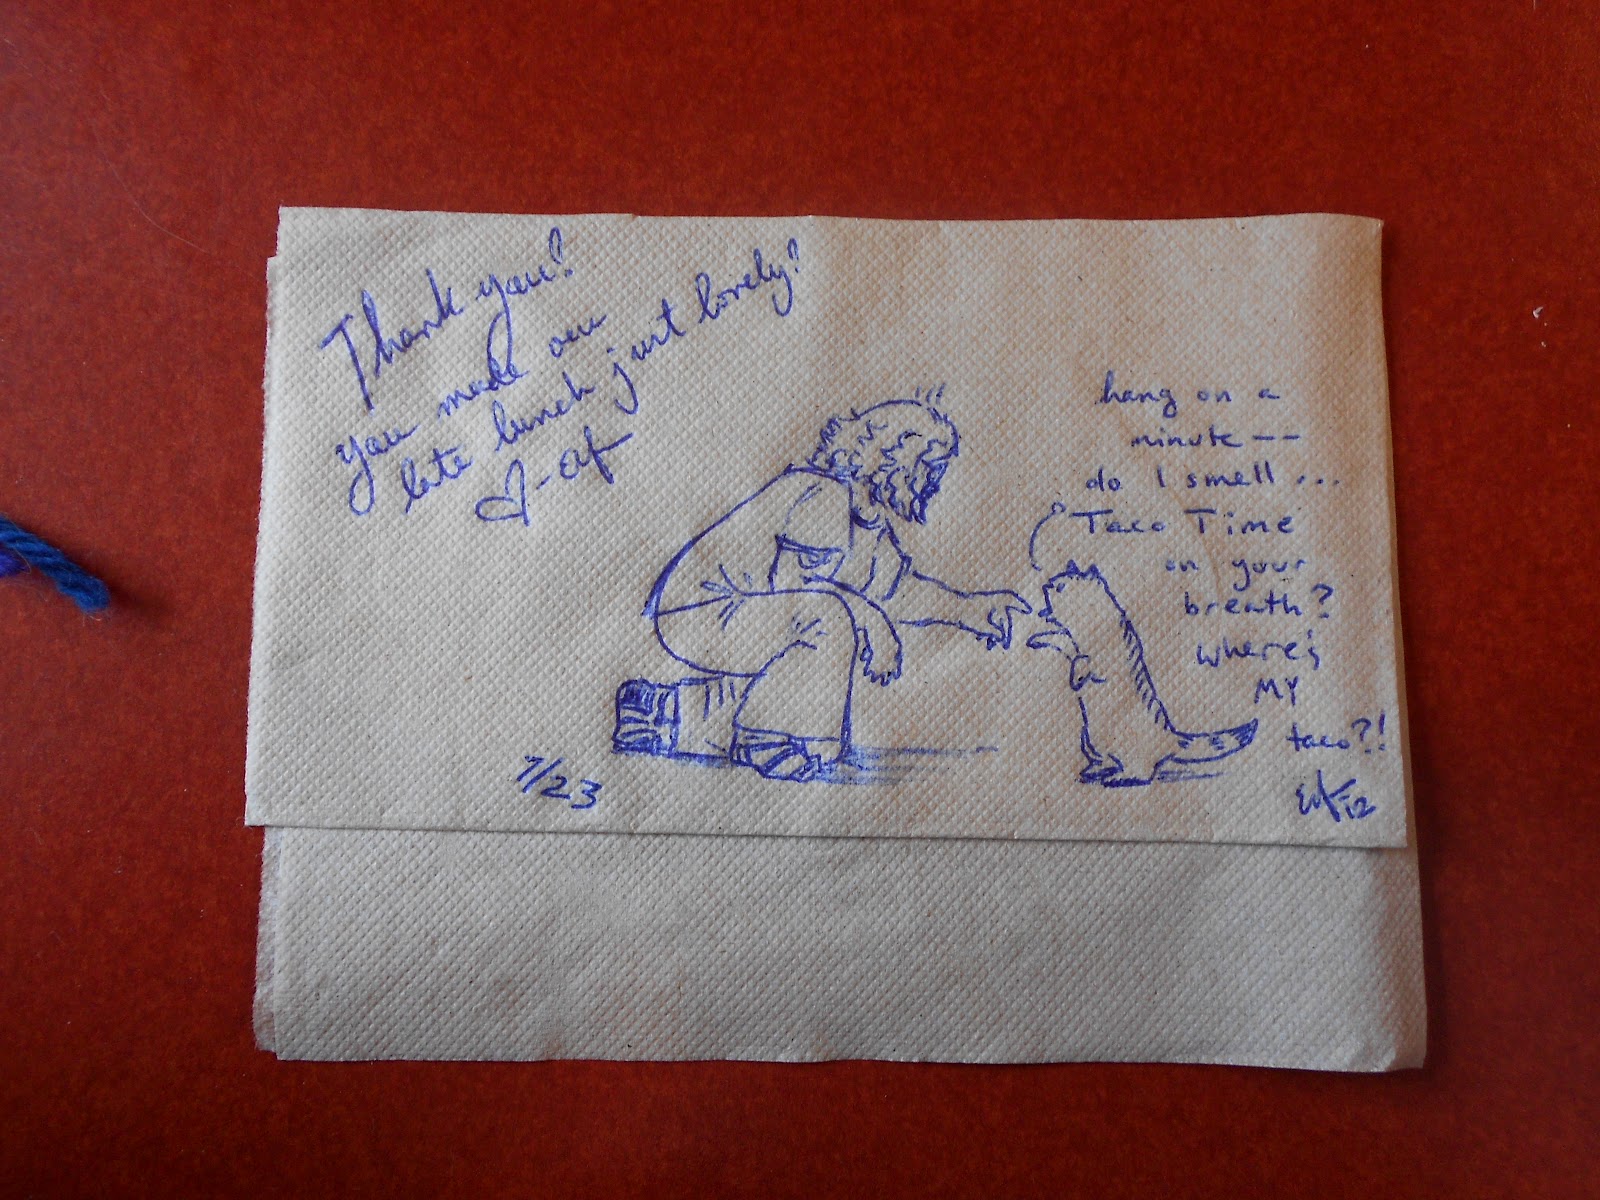 Thank you!
you made our
late lunch just lovely!
hang on a
minute--
do I smell...
Taco Time
on your
breath?
where's
MY
taco?!
7/23